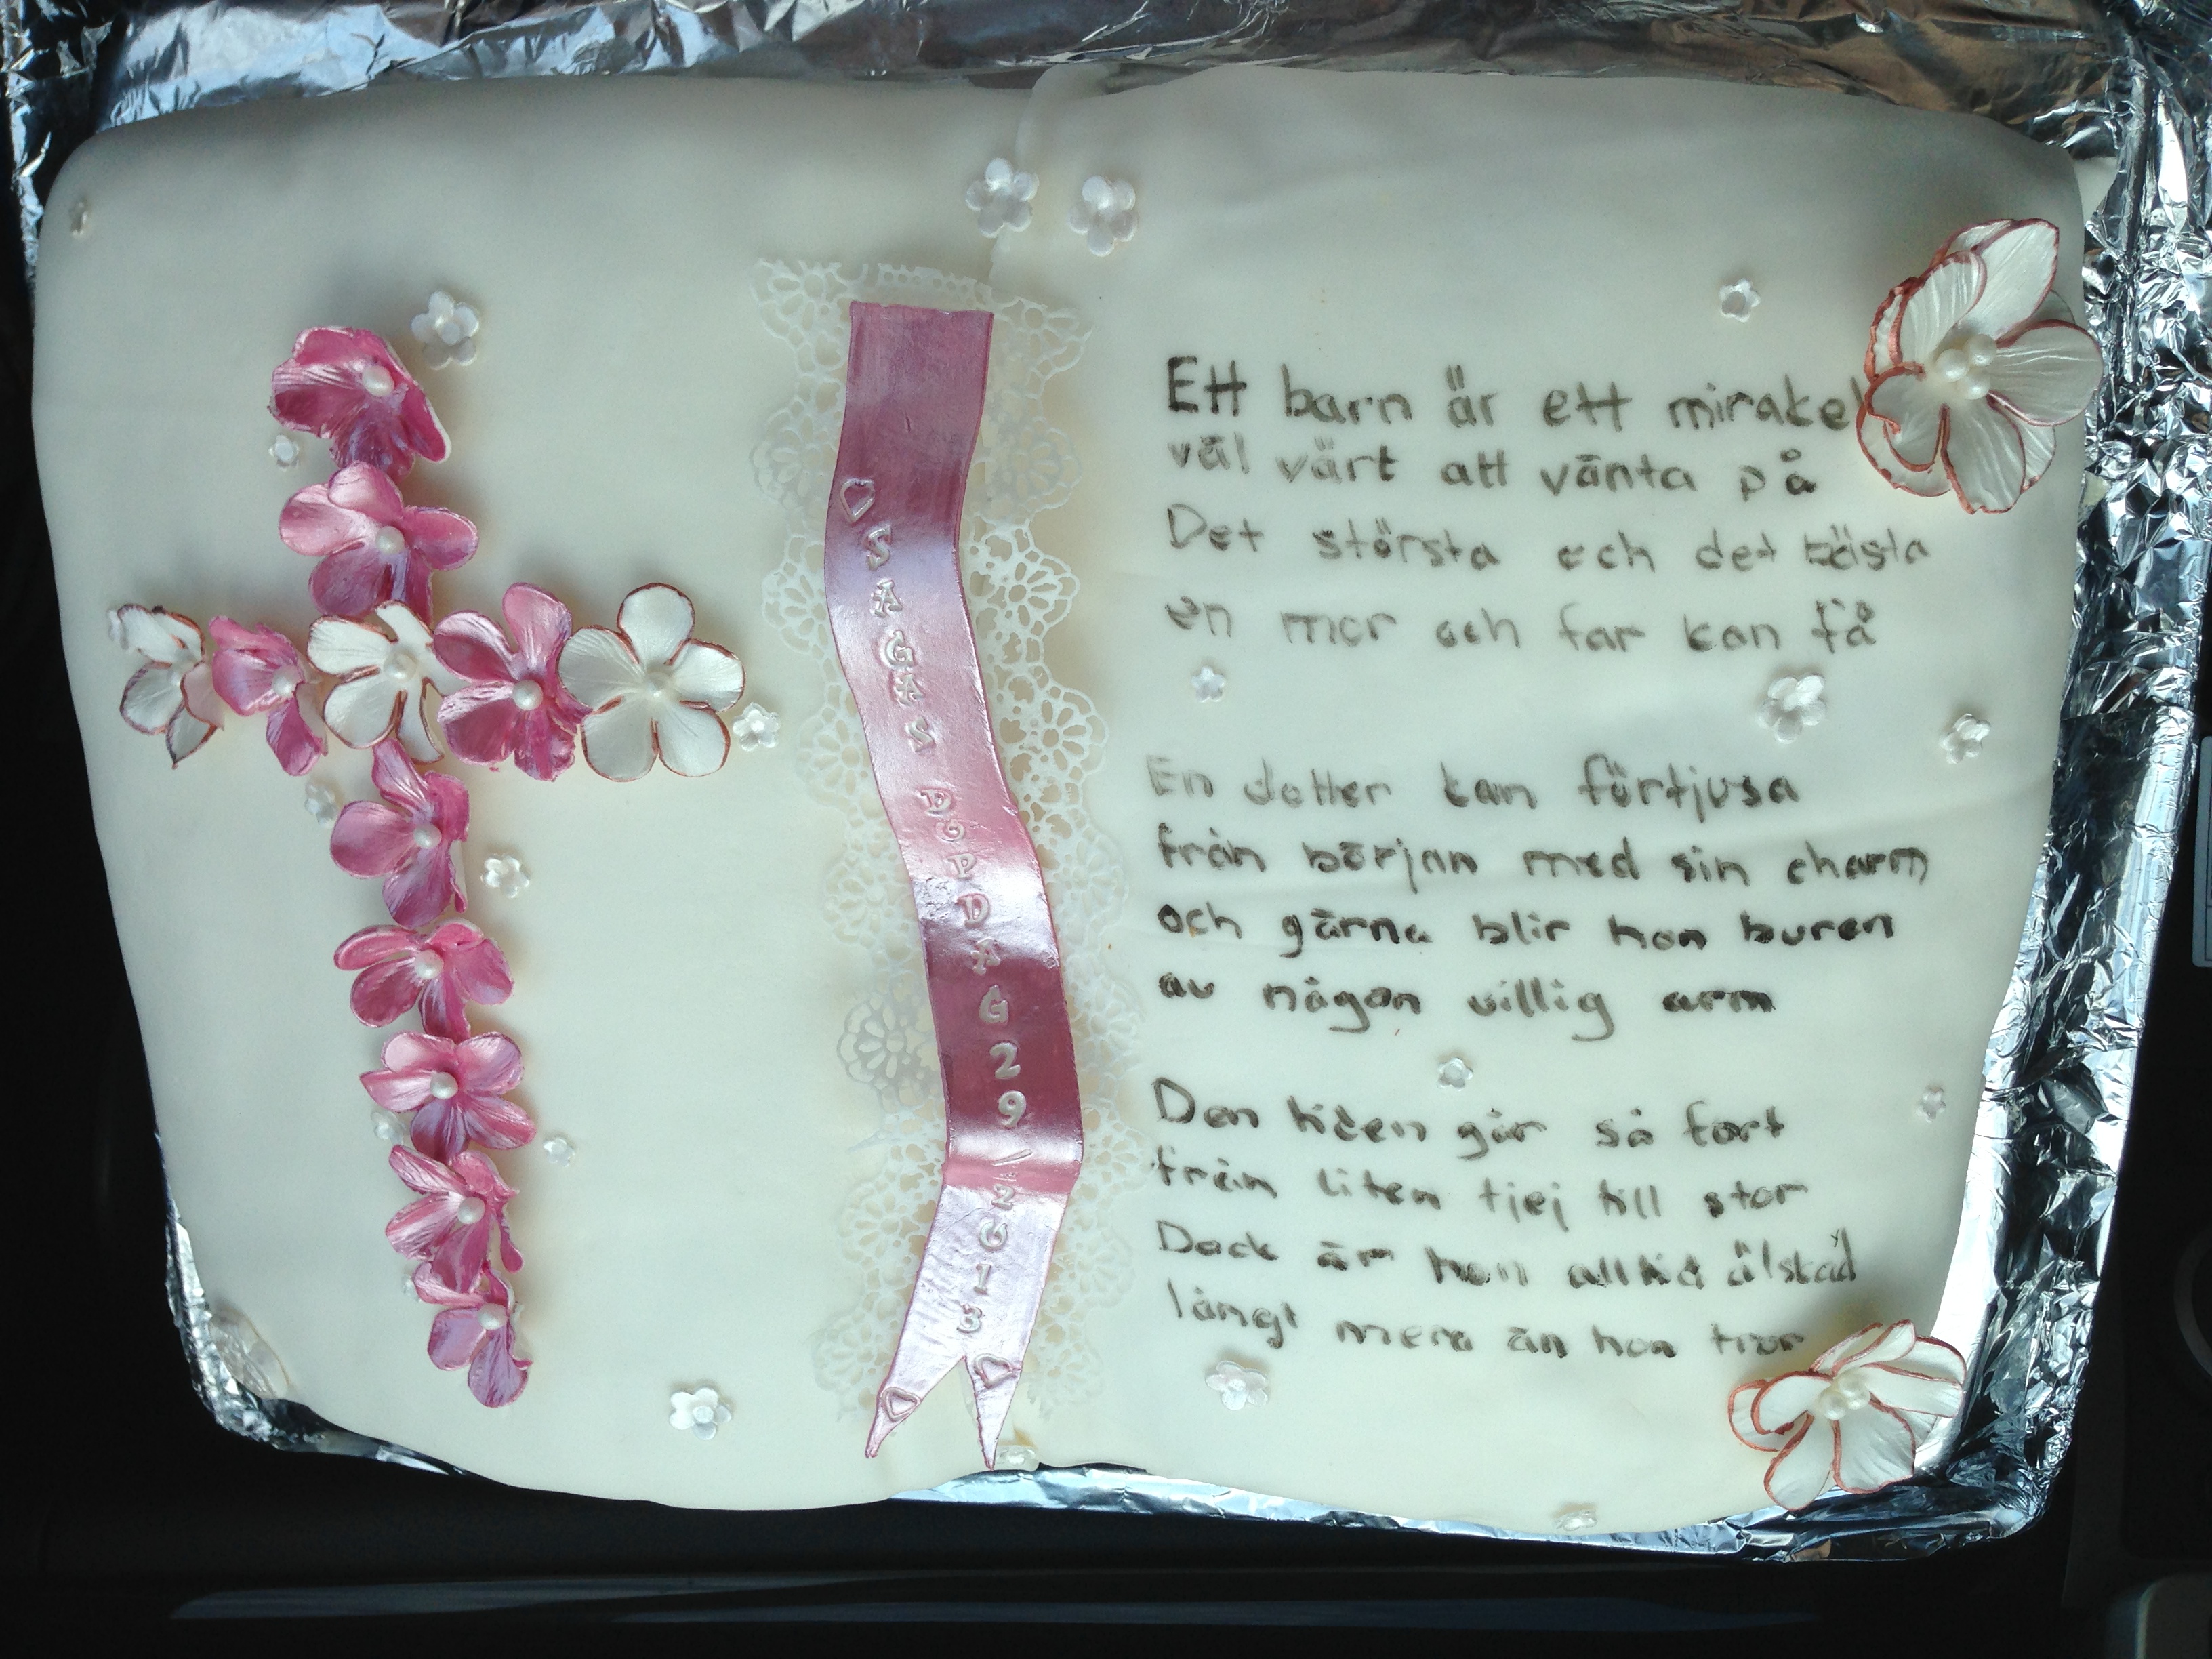 ♡ SAGAS DOPDAG 29/2013 ♡ ♡
Ett barn är ett mirakel
väl värt att vänta på
Det största och det bästa
en mor och far kan få
En dotter kan förtjusa
från början med sin charm
och gärna blir hon buren
av någon villig arm
Den tiden går så fort
från liten tjej till stor
Dock är hon alltid älskad
långt mera än hon tror